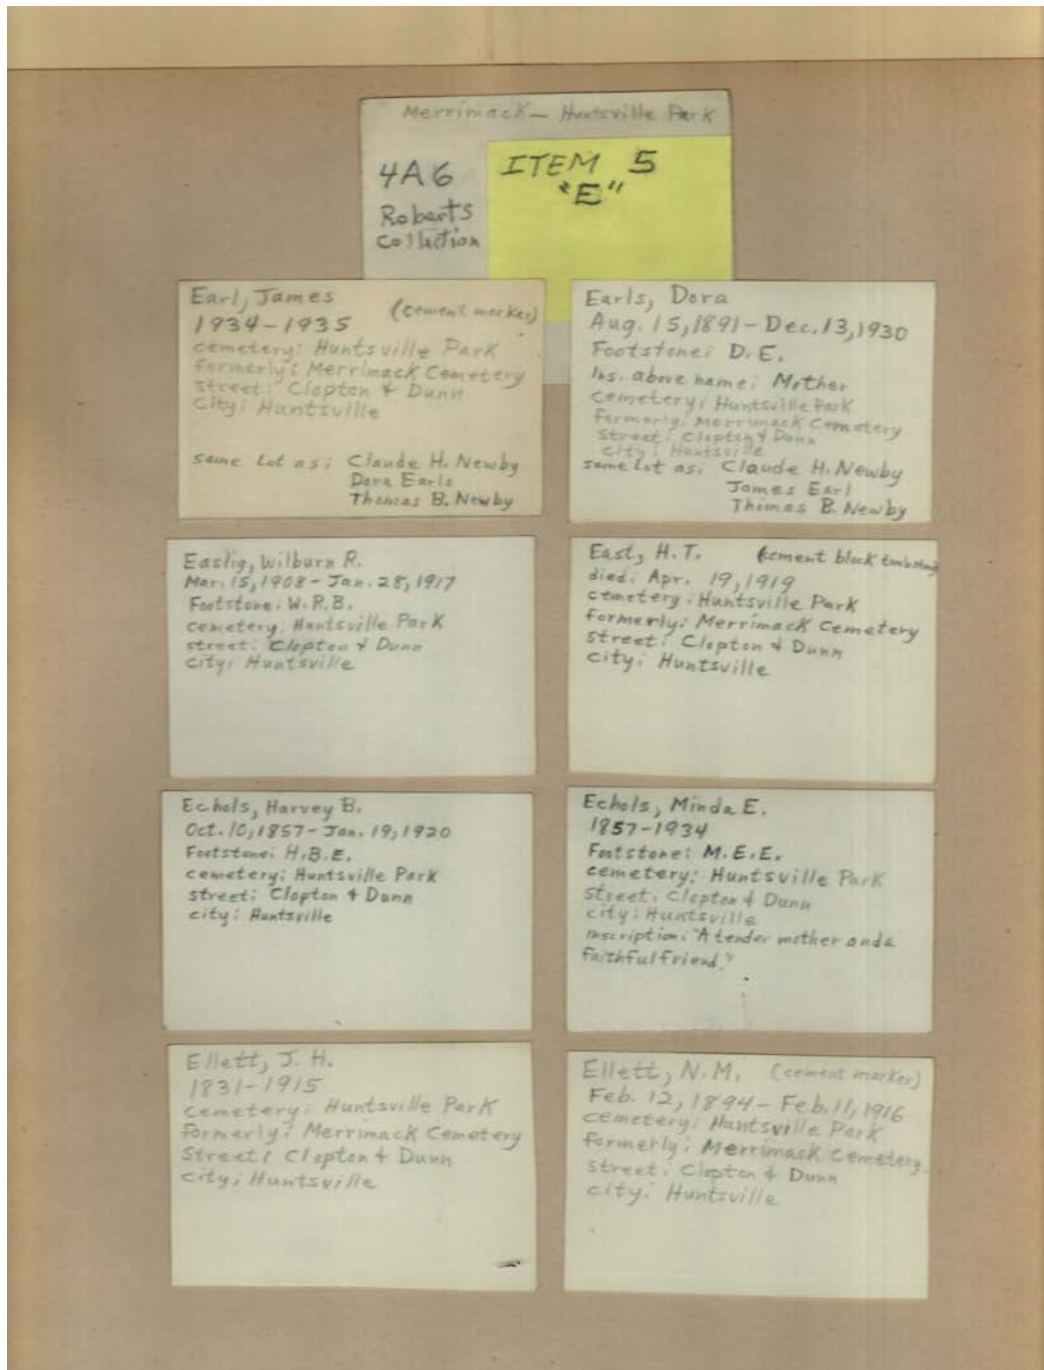 Merrimack — Huntsville Park
4A6
Roberts
Collection
ITEM 5
"E"
Earl, James
(cement marker)
1934-1935
cemetery: Huntsville Park
formerly: Merrimack Cemetery
street: Clopton & Dunn
City: Huntsville
same Lot as: Claude H. Newby
Dora Earls
Thomas B. Newby
Earls, Dora
Aug. 15, 1891 - Dec. 13, 1930
Footstone: D.E.
Ins. above name: Mother
cemetery: Huntsville Park
formerly: Merrimack Cemetery
street: Clopton & Dunn
city: Huntsville
same Lot as: Claude H. Newby
James Earl
Thomas B. Newby
Easlig, Wilburn R.
Mar. 15, 1908 - Jan. 28, 1917
Footstone: W.R.B.
cemetery: Huntsville Park
street: Clopton & Dunn
city: Huntsville
East, H.T. (cement block
died: Apr. 19, 1919
cemetery: Huntsville Park
formerly: Merrimack Cemetery
street: Clopton & Dunn
city: Huntsville
Echols, Harvey B.
Oct. 10, 1857 - Jan. 19, 1920
Footstone: H.B.E.
cemetery: Huntsville Park
street: Clopton & Dunn
city: Huntsville
Echols, Minda E.
1857-1934
Footstone: M.E.E.
cemetery: Huntsville Park
street: Clopton & Dunn
city: Huntsville
inscription: "A tender mother and a
faithful friend."
Ellett, J. H.
1831-1915
cemetery: Huntsville Park
formerly: Merrimack Cemetery
Street: Clopton & Dunn
city: Huntsville
Ellett, N.M. (cement marker)
Feb. 12, 1894 - Feb. 11, 1916
cemetery: Huntsville Park
formerly: Merrimack Cemetery
street: Clopton & Dunn
city: Huntsville